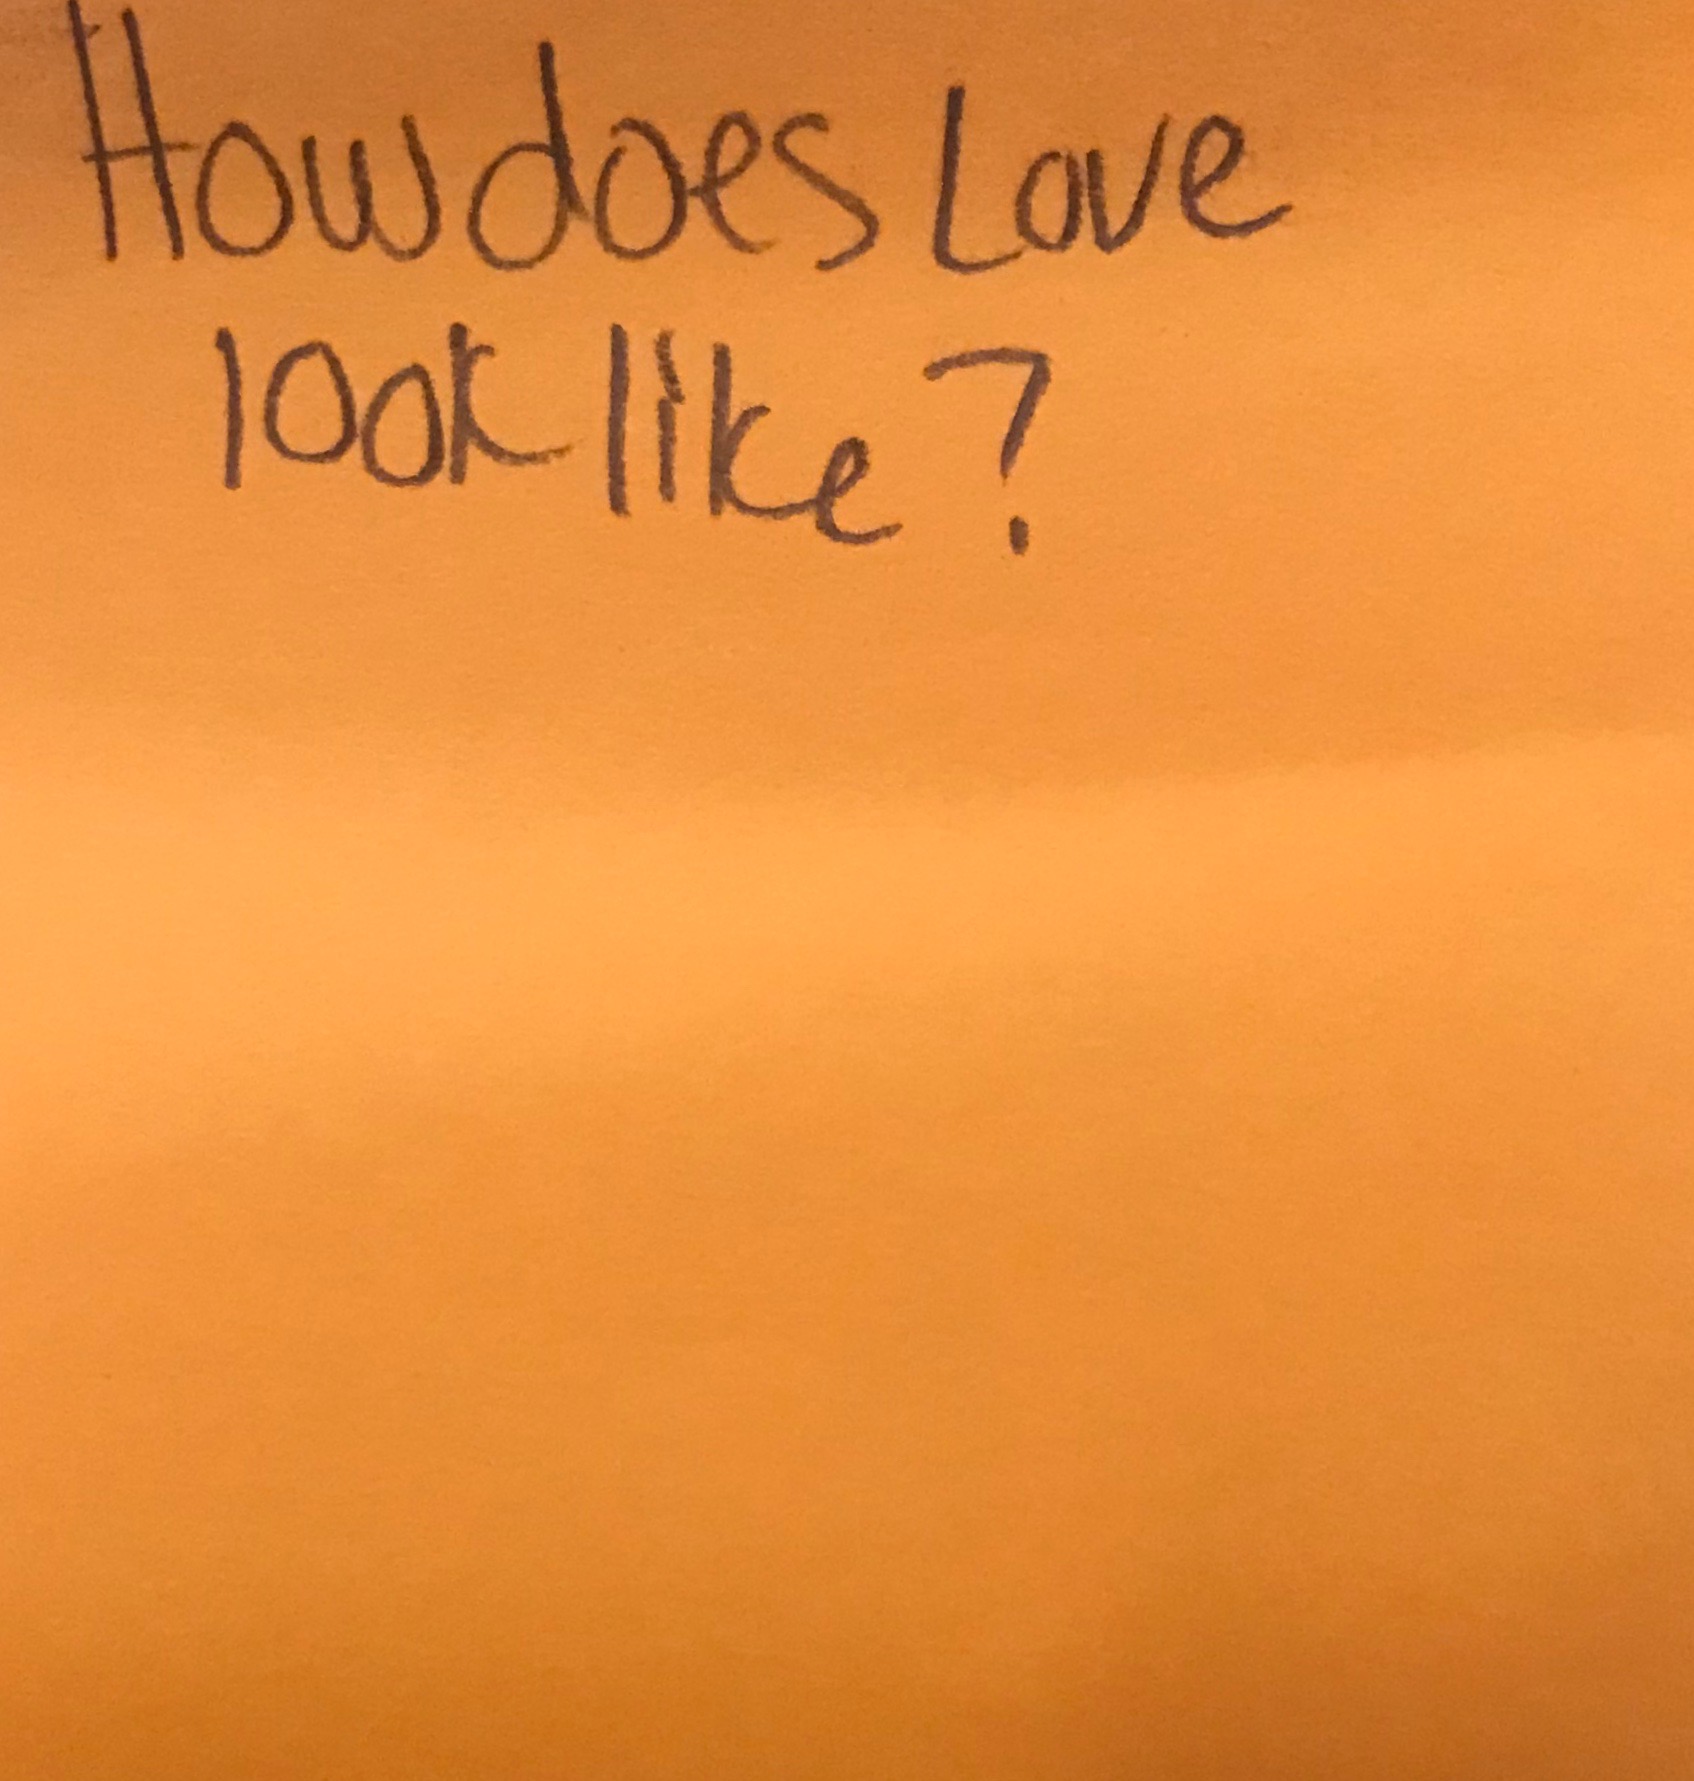 How does Love
look like?